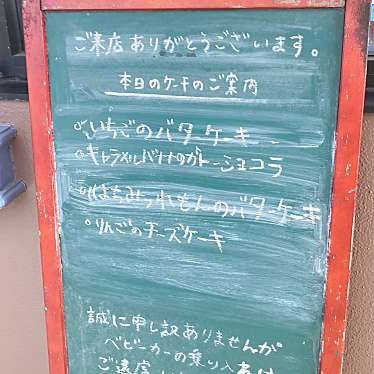 ご来店ありがとうございます。
本日のケーキのご案内
○いちごのバターケーキ
○キャラメルバナナのガトーショコラ
○はちみつれもんのバターケーキ
○りんごのチーズケーキ
誠に申し訳ありませんが
ベビーカーの乗り入れは
ご遠慮